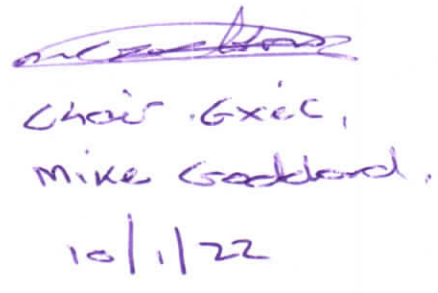 Chair Exec,
Mike Goddard.
10/1/22